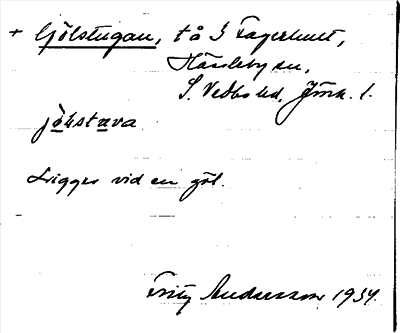 + Gölstugan, tå I Fagerhult,
Hässleby sn,
S. Vedbo hd, Jönk. l.
jö̱lstu̱va
Ligger vid en göl.
Fritz Andersson 1934.